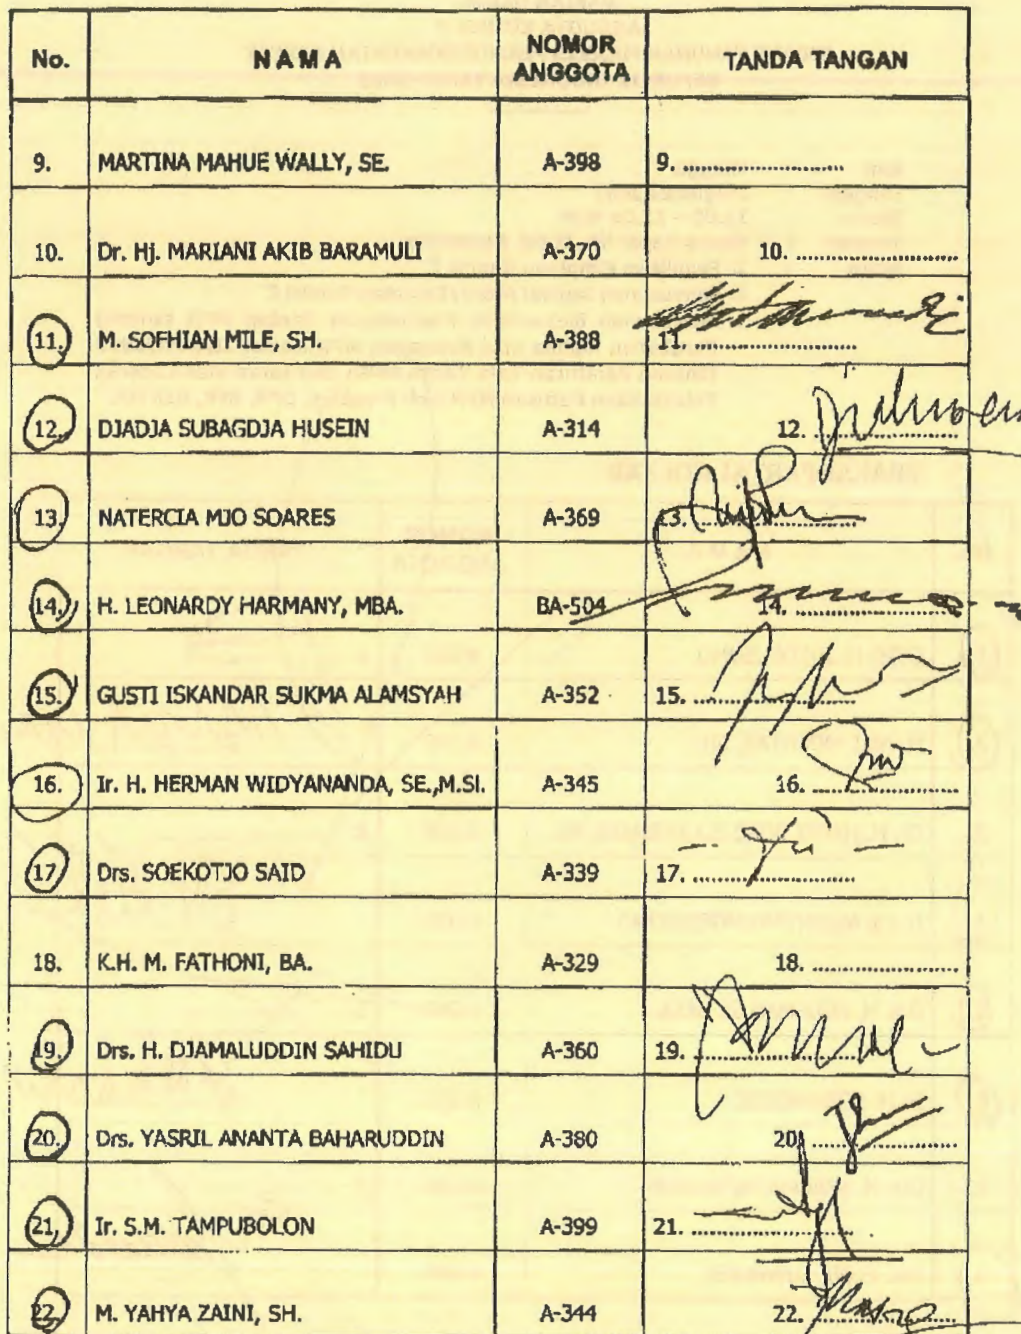 No. NAMA NOMOR ANGGOTA TANDA TANGAN
9. MARTINA MAHUE WALLY, SE. A-398 9. ....................
10. Dr. Hj. MARIANI AKIB BARAMULI A-370 10. ....................
11. M. SOFHIAN MILE, SH. A-388 11. ....................
12. DJADJA SUBAGDJA HUSEIN A-314 12. ....................
13. NATERCIA MJO SOARES A-369 13. ....................
14. H. LEONARDY HARMANY, MBA. BA-504 14. ....................
15. GUSTI ISKANDAR SUKMA ALAMSYAH A-352 15. ....................
16. Ir. H. HERMAN WIDYANANDA, SE.,M.SI. A-345 16. ....................
17. Drs. SOEKOTJO SAID A-339 17. ....................
18. K.H. M. FATHONI, BA. A-329 18. ....................
19. Drs. H. DJAMALUDDIN SAHIDU A-360 19. ....................
20. Drs. YASRIL ANANTA BAHARUDDIN A-380 20. ....................
21. Ir. S.M. TAMPUBOLON A-399 21. ....................
22. M. YAHYA ZAINI, SH. A-344 22. ....................